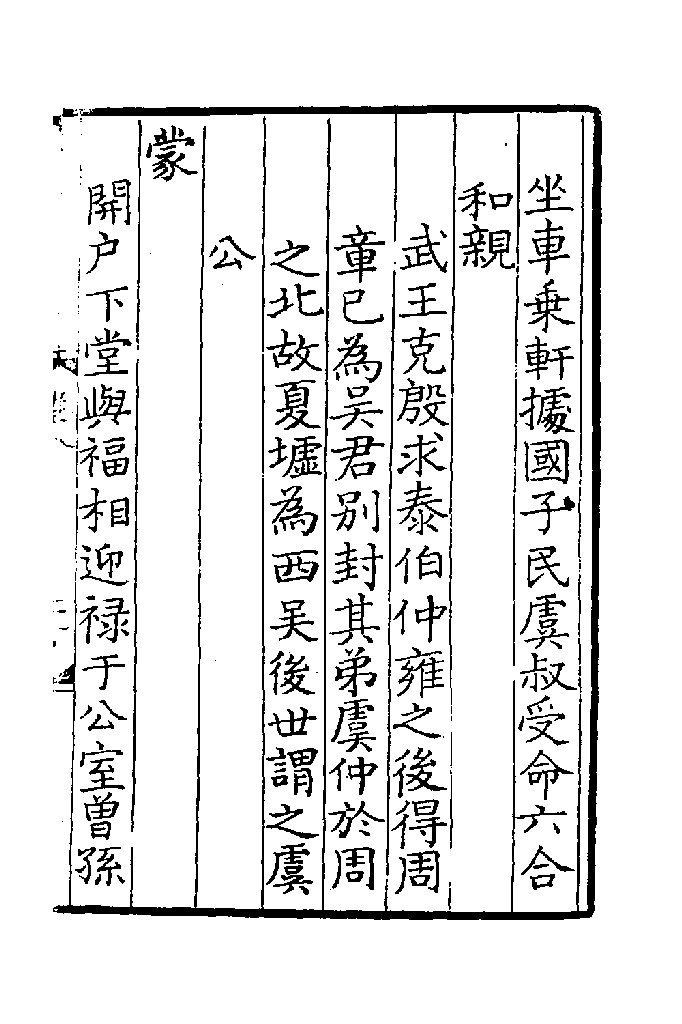 坐車乗軒據國子民虞叔受命六合
和親
武王克殷求泰伯仲雍之後得周
章已為吳君别封其弟虞仲於周
之北故夏墟為西吴後世謂之虞
公
蒙
開户下堂與福相迎禄于公室曽孫